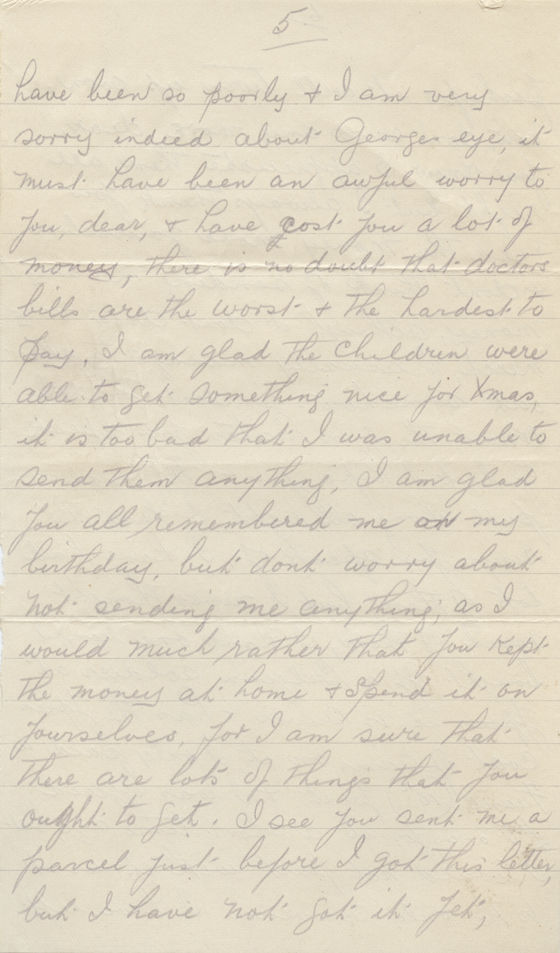 5
have been so poorly & I am very
sorry indeed about Georges eye, it
must have been an awful worry to
you, dear, & have cost you a lot of
money, there is no doubt that doctors
bills are the worst & the hardest to
pay. I am glad the children were
able to get something nice for Xmas,
it is too bad that I was unable to
send them anything, I am glad
you all remembered me on my
birthday, but dont worry about
not sending me anything, as I
would much rather that you kept
the money at home & spend it on
yourselves, for I am sure that
there are lots of things that you
ought to get. I see you sent me a
parcel just before I got this letter,
but I have not got it yet,